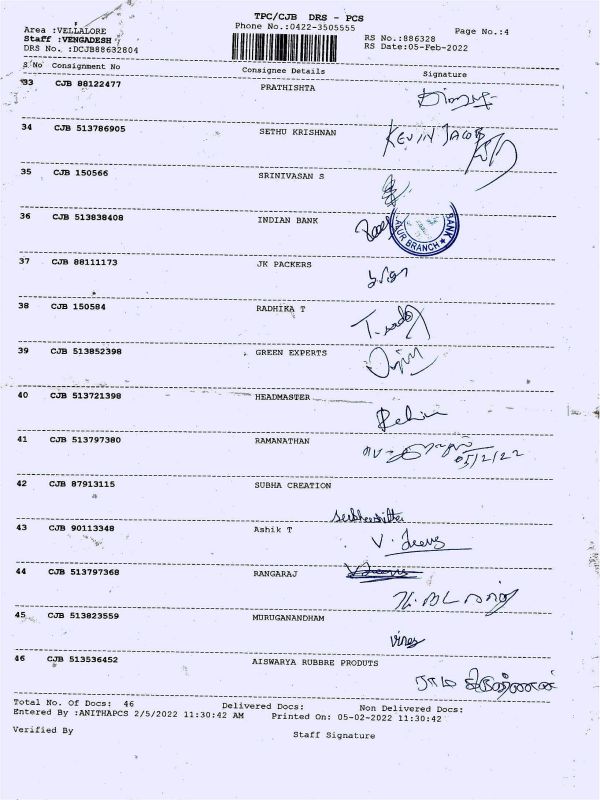 TPC/CJB DRS - PCS
Area :VELLALORE
Phone No.:0422-3505555
Page No.:4
Staff :VENGADESH
RS No.:886328
DRS No. :DCJB88632804
RS Date:05-Feb-2022
S No Consignment No Consignee Details Signature
33 CJB 88122477 PRATHISHTA
34 CJB 513786905 SETHU KRISHNAN KEVIN JACOB
35 CJB 150566 SRINIVASAN S
36 CJB 513838408 INDIAN BANK
BRANCH ★ BANK
37 CJB 88111173 JK PACKERS
38 CJB 150584 RADHIKA T
39 CJB 513852398 GREEN EXPERTS
40 CJB 513721398 HEADMASTER
41 CJB 513797380 RAMANATHAN
05/2/22
42 CJB 87913115 SUBHA CREATION
43 CJB 90113348 Ashik T
44 CJB 513797368 RANGARAJ
45 CJB 513823559 MURUGANANDHAM
46 CJB 513536452 AISWARYA RUBBRE PRODUTS
Total No. Of Docs: 46 Delivered Docs: Non Delivered Docs:
Entered By :ANITHAPCS 2/5/2022 11:30:42 AM Printed On: 05-02-2022 11:30:42
Verified By Staff Signature